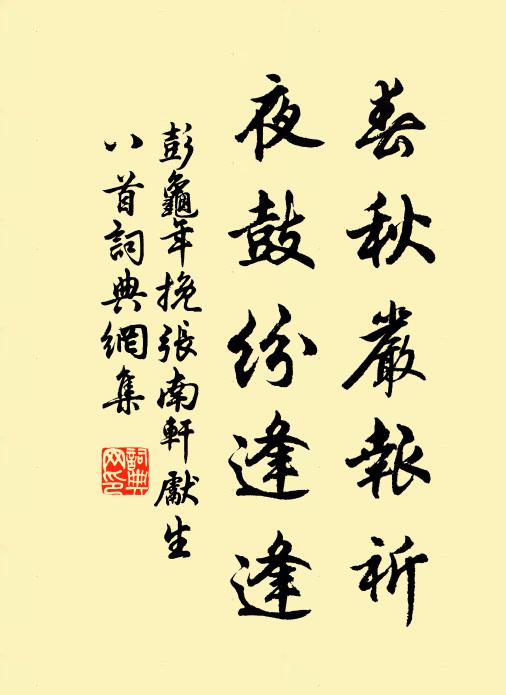 春秋嚴報祈
夜鼓紛逢逢
彭龜年挽張南軒獻生
八首詞典網集
詞典
网印